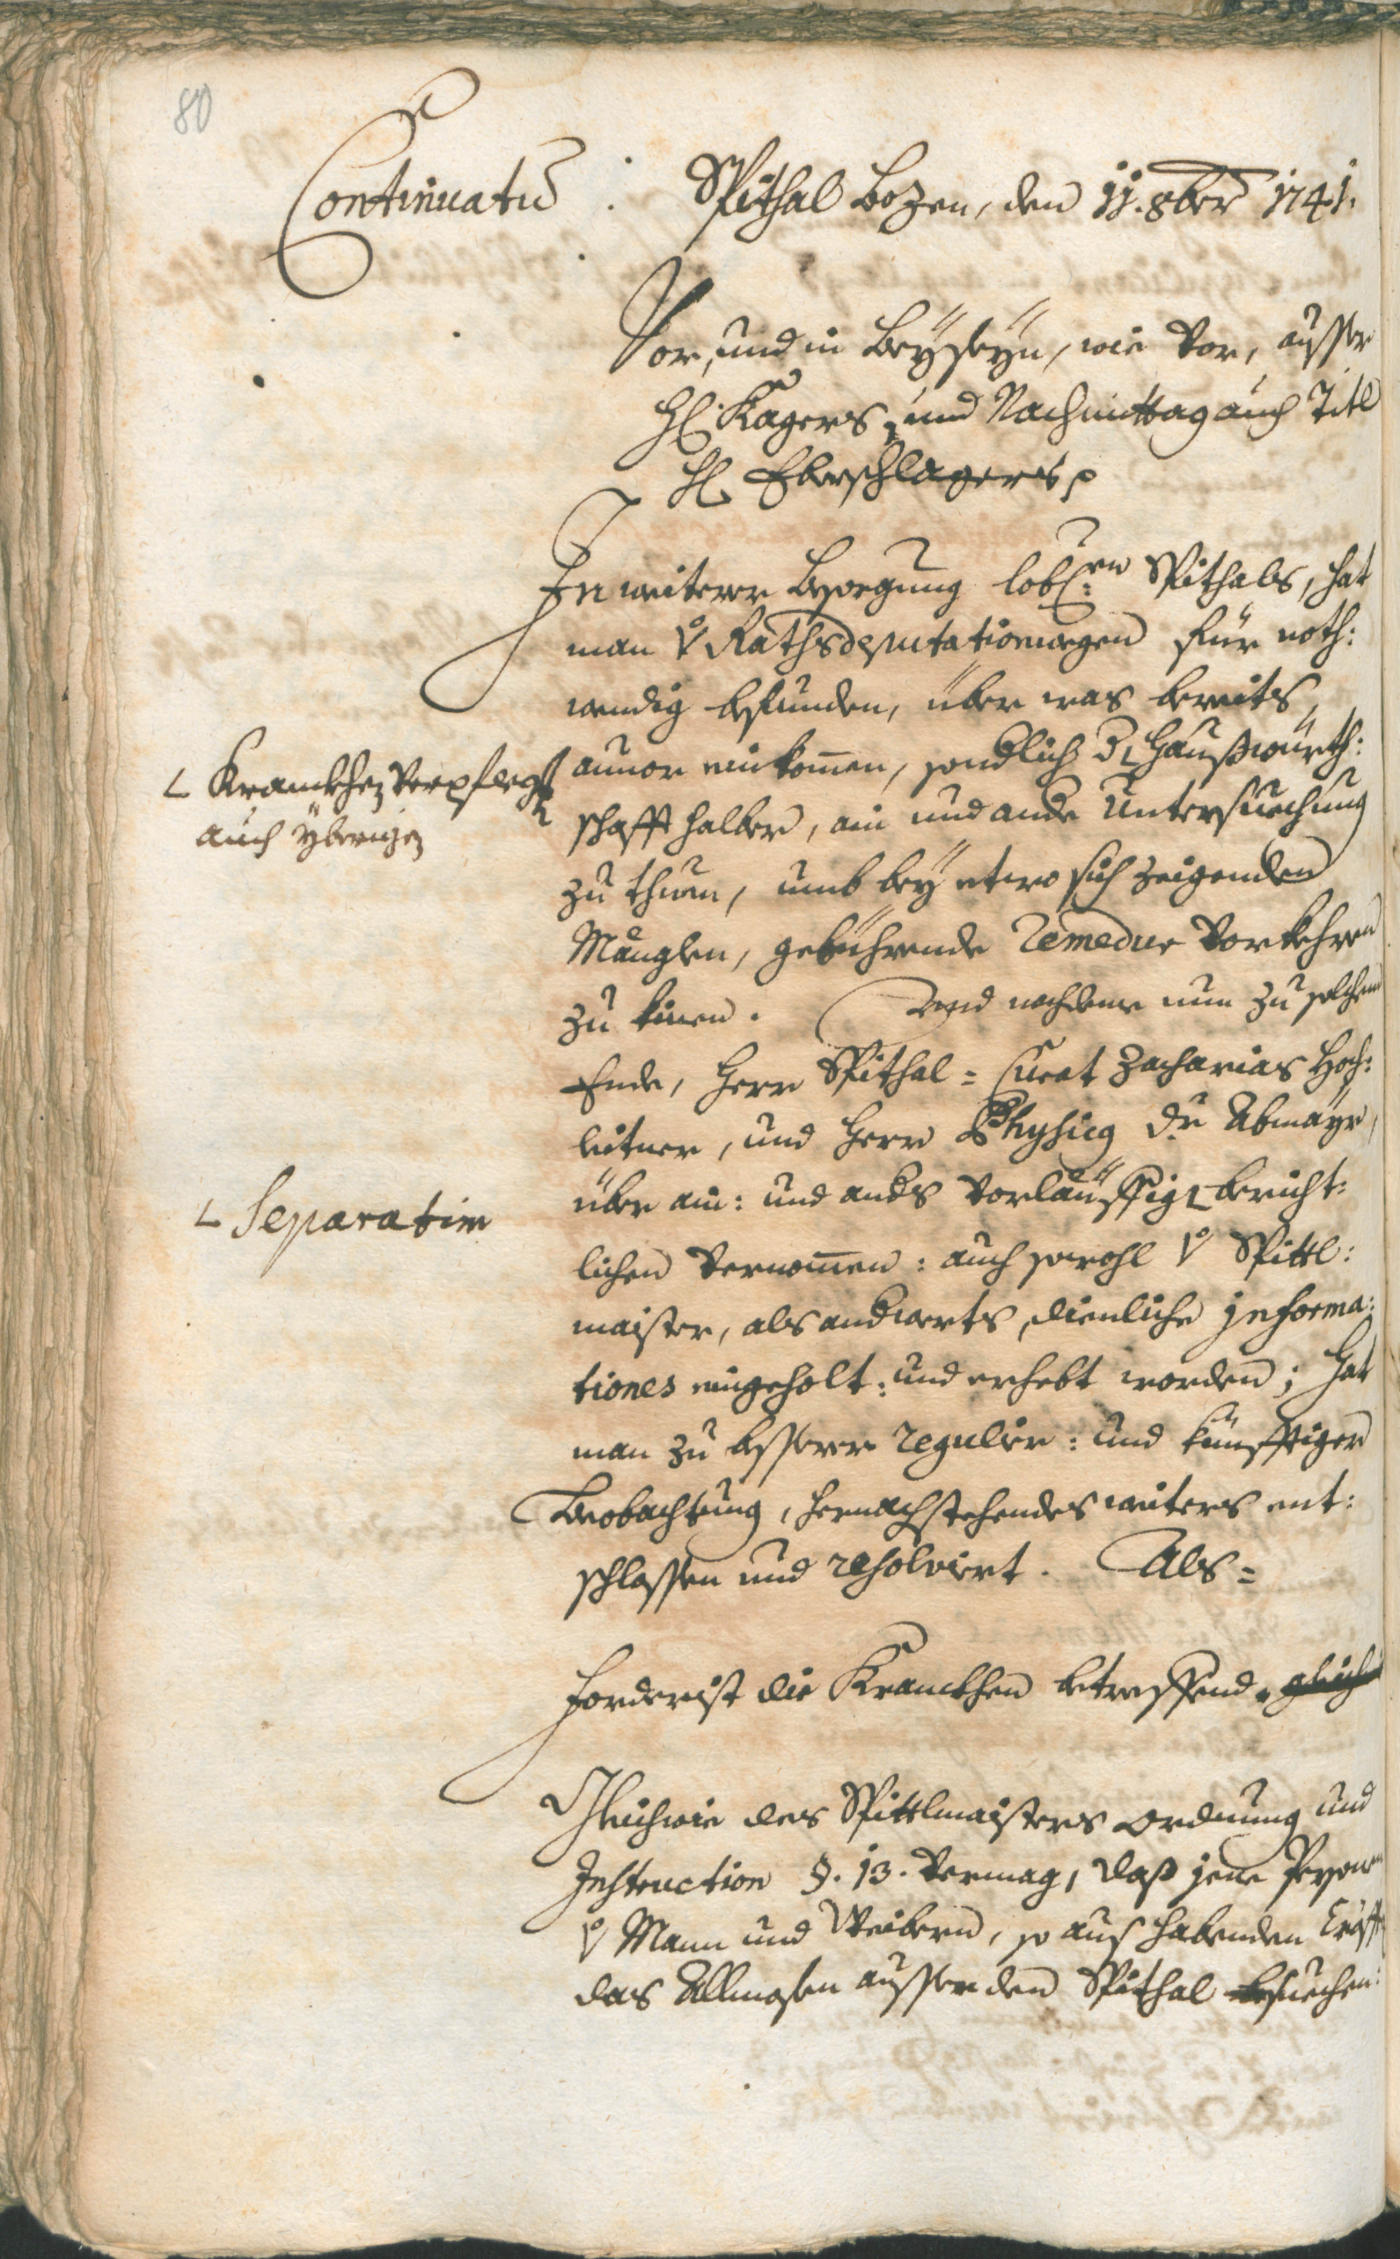 80
Continuatū : Spithal Bozen, den 11. 8ber 1741.
Vor, und in Beÿseÿn, wie Vor, ausser
H: Kagers, und Nachmittag auch Titl
H: Eberschlagers p
In weiterer besorgung lobl:en Spithals, hat
man v: Rathsdeputationwegen für noth:
wendig befunden, über was bereits
anvor einkom̄en, sondlich d: Haußwürth:
∟ Kranckhen Verpfleg:
auch ÿbrigen
schafft halber, ain und ande Untersuechung
zu thuen, umb beÿ etwo sich zeigenden
Mänglen, gebührende remedur Vorkehren
zu kinen. Und nachdeme nun zu solchem
Ende, Herr Spithal = Curat Zacharias Hoch:
leitner, und Herr Physicus Dr. Abmayr,
über ain: und ands Vorläuffig ∟ bericht:
∟ Separatim
lichen Vernom̄en: auch sowohl v: Spittl:
maister, als andwerts, dienliche Informa:
tiones eingeholt: und erhebt worden; hat
man zu besserer regulier: und künfftiger
Beobachtung, hernachstehendes weiters ent:
schlossen und resolviert. Als =
Forderist die Kranckhen betreffend. gleich
Gleichwie des Spittlmaisters Ordnung und
Instruction §. 13. Vermag, daß jene Persohn
v: Mann und Weibern, so aus habenden
das Allmosen ausser den Spithal besuechen: